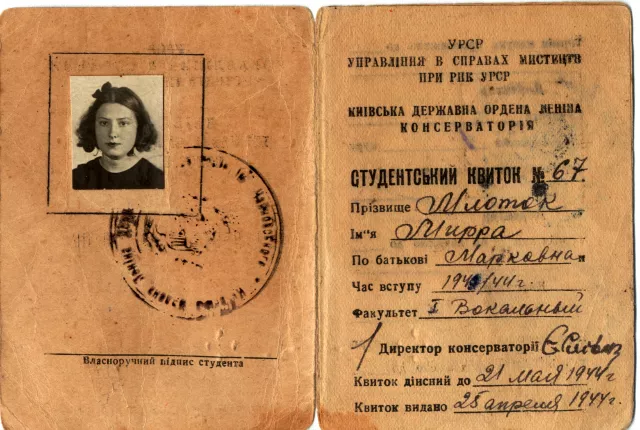 Власноручний підпис студента
УРСР
УПРАВЛІННЯ В СПРАВАХ МИСТЕЦТВ
ПРИ РНК УРСР
КИЇВСЬКА ДЕРЖАВНА ОРДЕНА ЛЕНІНА
КОНСЕРВАТОРІЯ
СТУДЕНТСЬКИЙ КВИТОК № 67
Прізвище Млоток
Ім'я Мирра
По батькові Марковна
Час вступу 1943/44 г.
Факультет I Вокальный
Директор консерваторії
Квиток дійсний до 21 мая 1944 г
Квиток видано 25 апреля 1944 г.